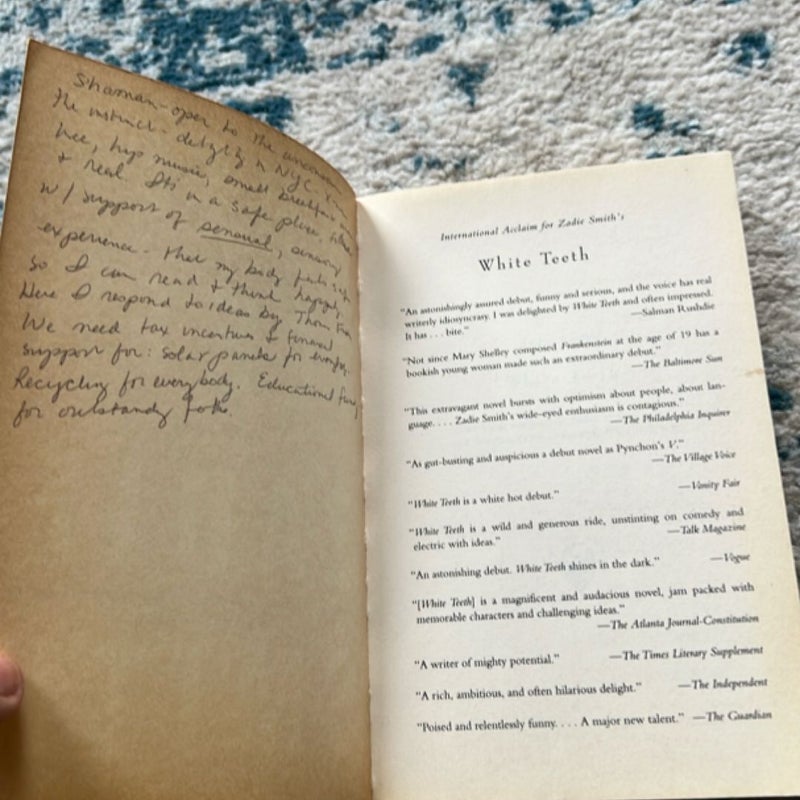 Shaman - open to the unconscious
the instinct - delight in NYC.
tree, hip music, small breakfast
+ real. It's in a safe place.
w/ support of sensual, sensory
experience - that my body feels safe
so I can read + think happily,
Here I respond to ideas by Thom
We need tax incentives + financial
support for: solar panels for everyone.
Recycling for everybody. Educational
for outstanding folks.
International Acclaim for Zadie Smith's
White Teeth
"An astonishingly assured debut, funny and serious, and the voice has real
writerly idiosyncrasy. I was delighted by White Teeth and often impressed.
It has . . . bite."
—Salman Rushdie
"Not since Mary Shelley composed Frankenstein at the age of 19 has a
bookish young woman made such an extraordinary debut."
—The Baltimore Sun
"This extravagant novel bursts with optimism about people, about lan-
guage. . . . Zadie Smith's wide-eyed enthusiasm is contagious."
—The Philadelphia Inquirer
"As gut-busting and auspicious a debut novel as Pynchon's V."
—The Village Voice
"White Teeth is a white hot debut." —Vanity Fair
"White Teeth is a wild and generous ride, unstinting on comedy and
electric with ideas." —Talk Magazine
"An astonishing debut. White Teeth shines in the dark." —Vogue
"[White Teeth] is a magnificent and audacious novel, jam packed with
memorable characters and challenging ideas."
—The Atlanta Journal-Constitution
"A writer of mighty potential." —The Times Literary Supplement
"A rich, ambitious, and often hilarious delight." —The Independent
"Poised and relentlessly funny. . . . A major new talent." —The Guardian